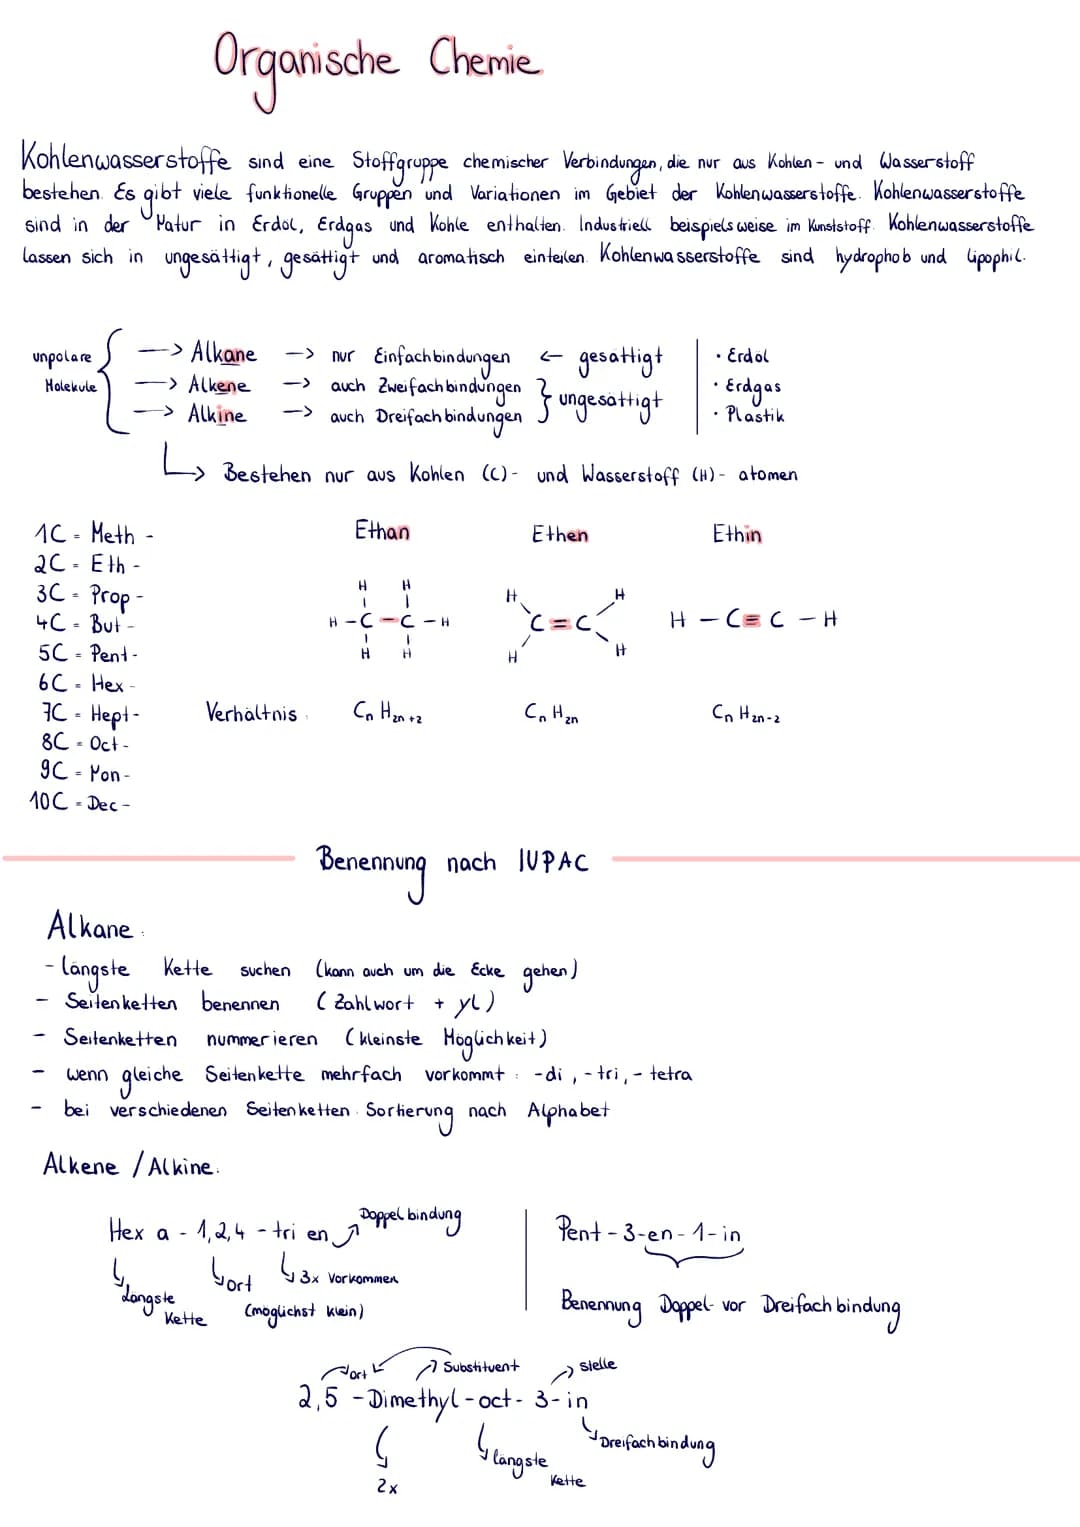 Organische Chemie
Kohlenwasserstoffe sind eine Stoffgruppe chemischer Verbindungen, die nur aus Kohlen- und Wasserstoff
bestehen. Es gibt viele funktionelle Gruppen und Variationen im Gebiet der Kohlenwasserstoffe. Kohlenwasserstoffe
sind in der Natur in Erdöl, Erdgas und Kohle enthalten. Industriell beispielsweise im Kunststoff. Kohlenwasserstoffe
lassen sich in ungesättigt, gesättigt und aromatisch einteilen. Kohlenwasserstoffe sind hydrophob und lipophil.
unpolare Moleküle
—> Alkane —> nur Einfachbindungen <— gesättigt
—> Alkene —> auch Zweifachbindungen
—> Alkine —> auch Dreifachbindungen
} ungesättigt
• Erdöl
• Erdgas
• Plastik
↳ Bestehen nur aus Kohlen (C)- und Wasserstoff (H)- atomen
1C = Meth -
2C = Eth -
3C = Prop -
4C = But -
5C = Pent -
6C = Hex -
7C = Hept -
8C = Oct -
9C = Non -
10C = Dec -
Ethan Ethen Ethin
H H
H - C - C - H
H H
H H
C = C
H H
H - C ≡ C - H
Verhältnis: CnH2n+2 CnH2n CnH2n-2
Benennung nach IUPAC
Alkane:
- längste Kette suchen (kann auch um die Ecke gehen)
- Seitenketten benennen (Zahlwort + yl)
- Seitenketten nummerieren (kleinste Möglichkeit)
- wenn gleiche Seitenkette mehrfach vorkommt: -di, -tri, - tetra
- bei verschiedenen Seitenketten: Sortierung nach Alphabet
Alkene / Alkine:
Doppelbindung
Hex a - 1,2,4 - tri en
längste Kette
Ort
(möglichst klein)
3x Vorkommen
Pent - 3-en - 1-in
Benennung Doppel- vor Dreifachbindung
Ort Substituent Stelle
2,5 - Dimethyl - oct - 3-in
2x
längste Kette
Dreifachbindung